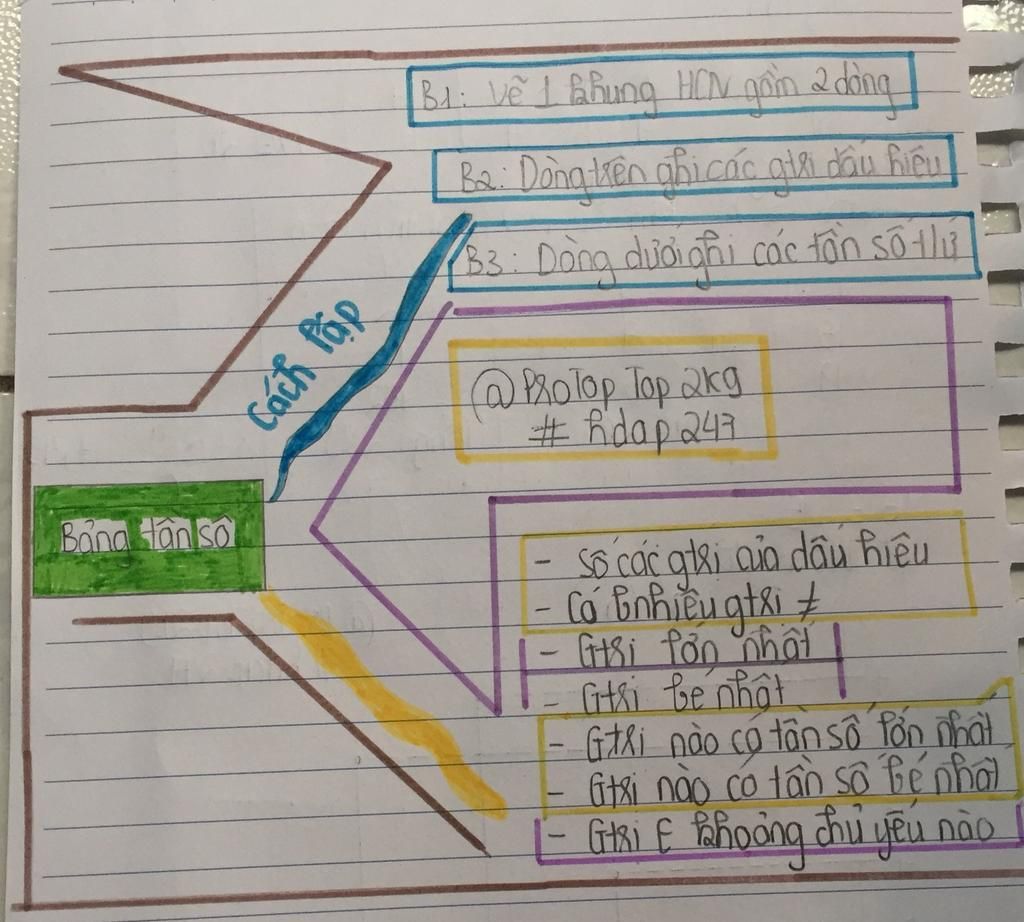 B1: Vẽ 1 khung HCN gồm 2 dòng
B2: Dòng trên ghi các gtri dấu hiệu
B3: Dòng dưới ghi các tần số t/ư
Cách lập
@ProTop Top 2kg
# hdap 247
Bảng tần số
- Số các gtri của dấu hiệu
- Có bnhiêu gtri ≠
- Gtri lớn nhất
- Gtri bé nhất
- Gtri nào có tần số lớn nhất
- Gtri nào có tần số bé nhất
- Gtri E khoảng chủ yếu nào